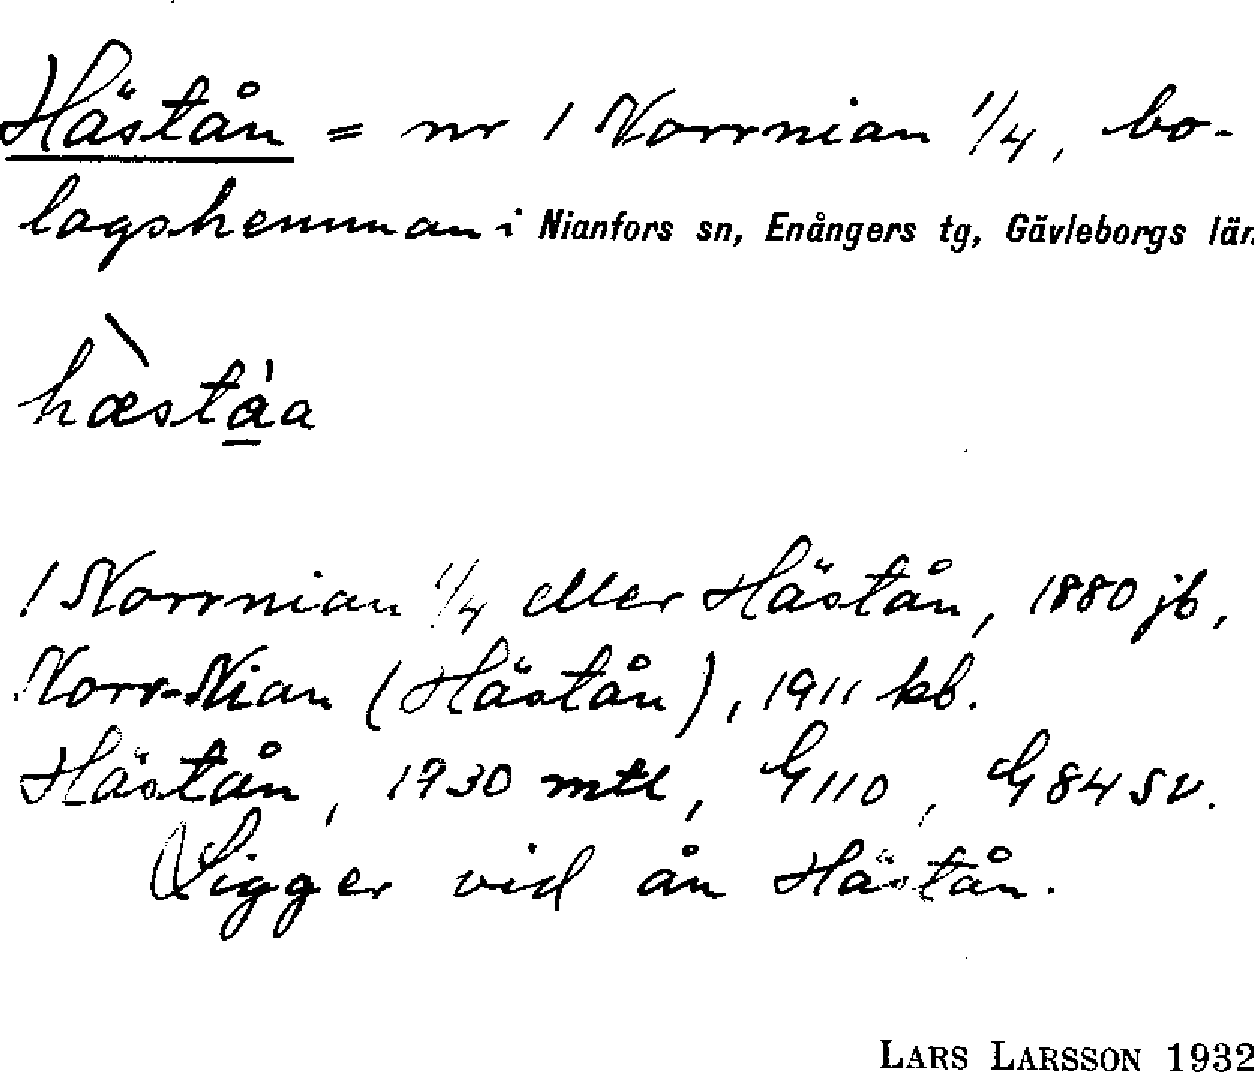 Hästån = nr 1 Norrnian 1/4, bo-
lagshemman i Nianfors sn, Enångers tg, Gävleborgs län
hæ̀stå̀a
1 Norrnian 1/4 eller Hästån, 1880 jb,
Norr-Nian (Hästån), 1911 kb.
Hästån, 1930 mtl, G110, G84 SV.
Ligger vid ån Hästån.
LARS LARSSON 1932